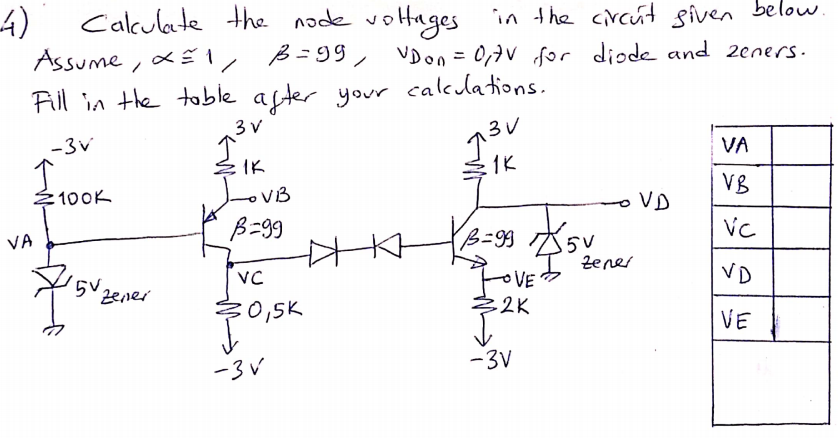 4) Calculate the node voltages in the circuit given below.
Assume, α≅1, β=99, VDon = 0,7V for diode and zeners.
Fill in the table after your calculations.
-3V
3V
3V
1K
1K
100K
VB
VD
VA
β=99
β=99
5V
zener
5V zener
VC
VE
0,5K
2K
-3V
-3V
VA
VB
VC
VD
VE